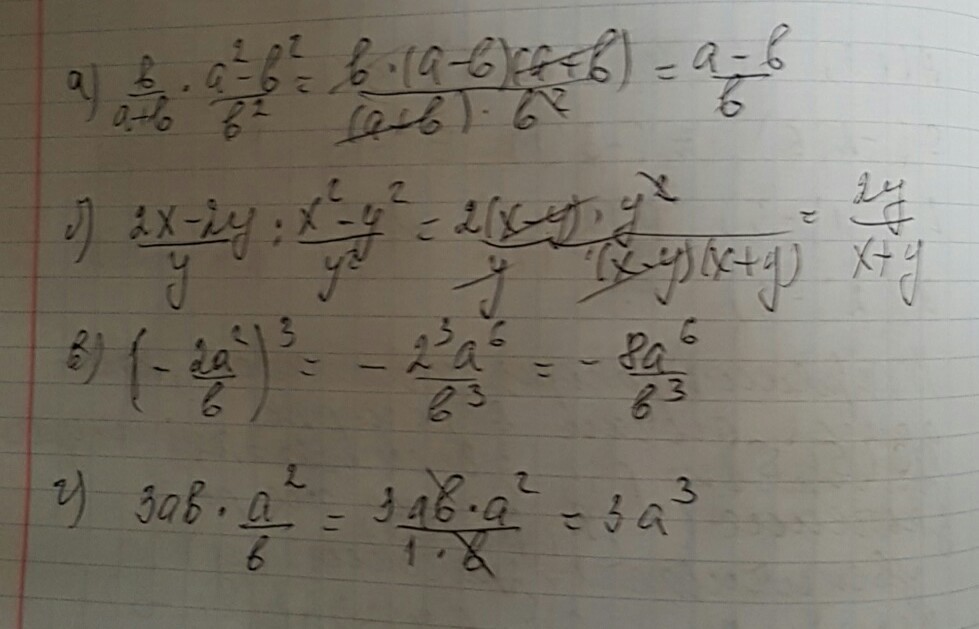 а) b/(a+b) · (a²-b²)/b² = (b·(a-b)(a+b))/((a+b)·b²) = (a-b)/b
б) (2x-2y)/y : (x²-y²)/y² = (2(x-y)·y²)/(y·(x-y)(x+y)) = 2y/(x+y)
в) (-2a²/b)³ = -2³a⁶/b³ = -8a⁶/b³
г) 3ab · a²/b = (3ab·a²)/(1·b) = 3a³